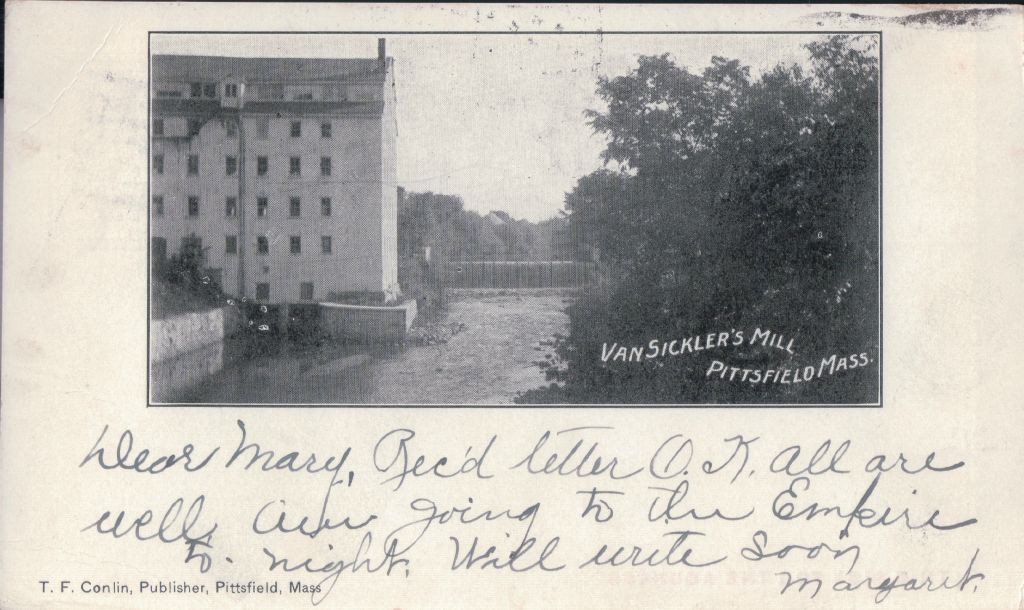 VAN SICKLER'S MILL
PITTSFIELD MASS.
Dear Mary, Rec'd letter O.K. All are
well, Am going to the Empire
to-night. Will write soon
Margaret.
T. F. Conlin, Publisher, Pittsfield, Mass